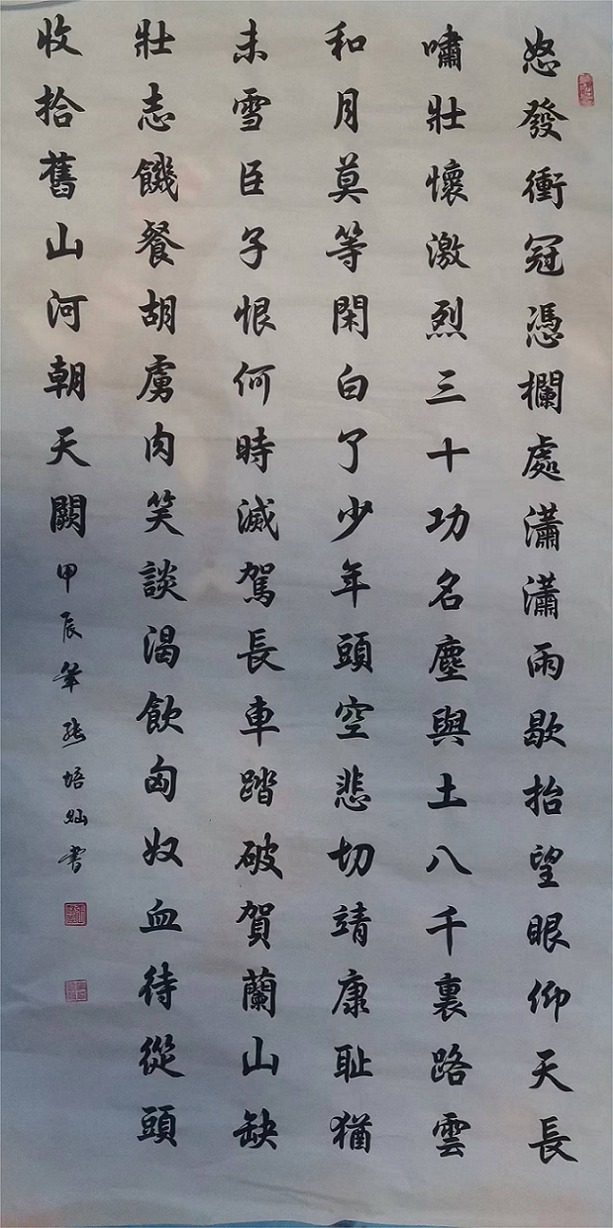 怒發衝冠憑欄處瀟瀟雨歇抬望眼仰天長
嘯壯懷激烈三十功名塵與土八千裏路雲
和月莫等閑白了少年頭空悲切靖康耻猶
未雪臣子恨何時滅駕長車踏破賀蘭山缺
壯志饑餐胡虜肉笑談渴飲匈奴血待從頭
收拾舊山河朝天闕甲辰年張培燦書